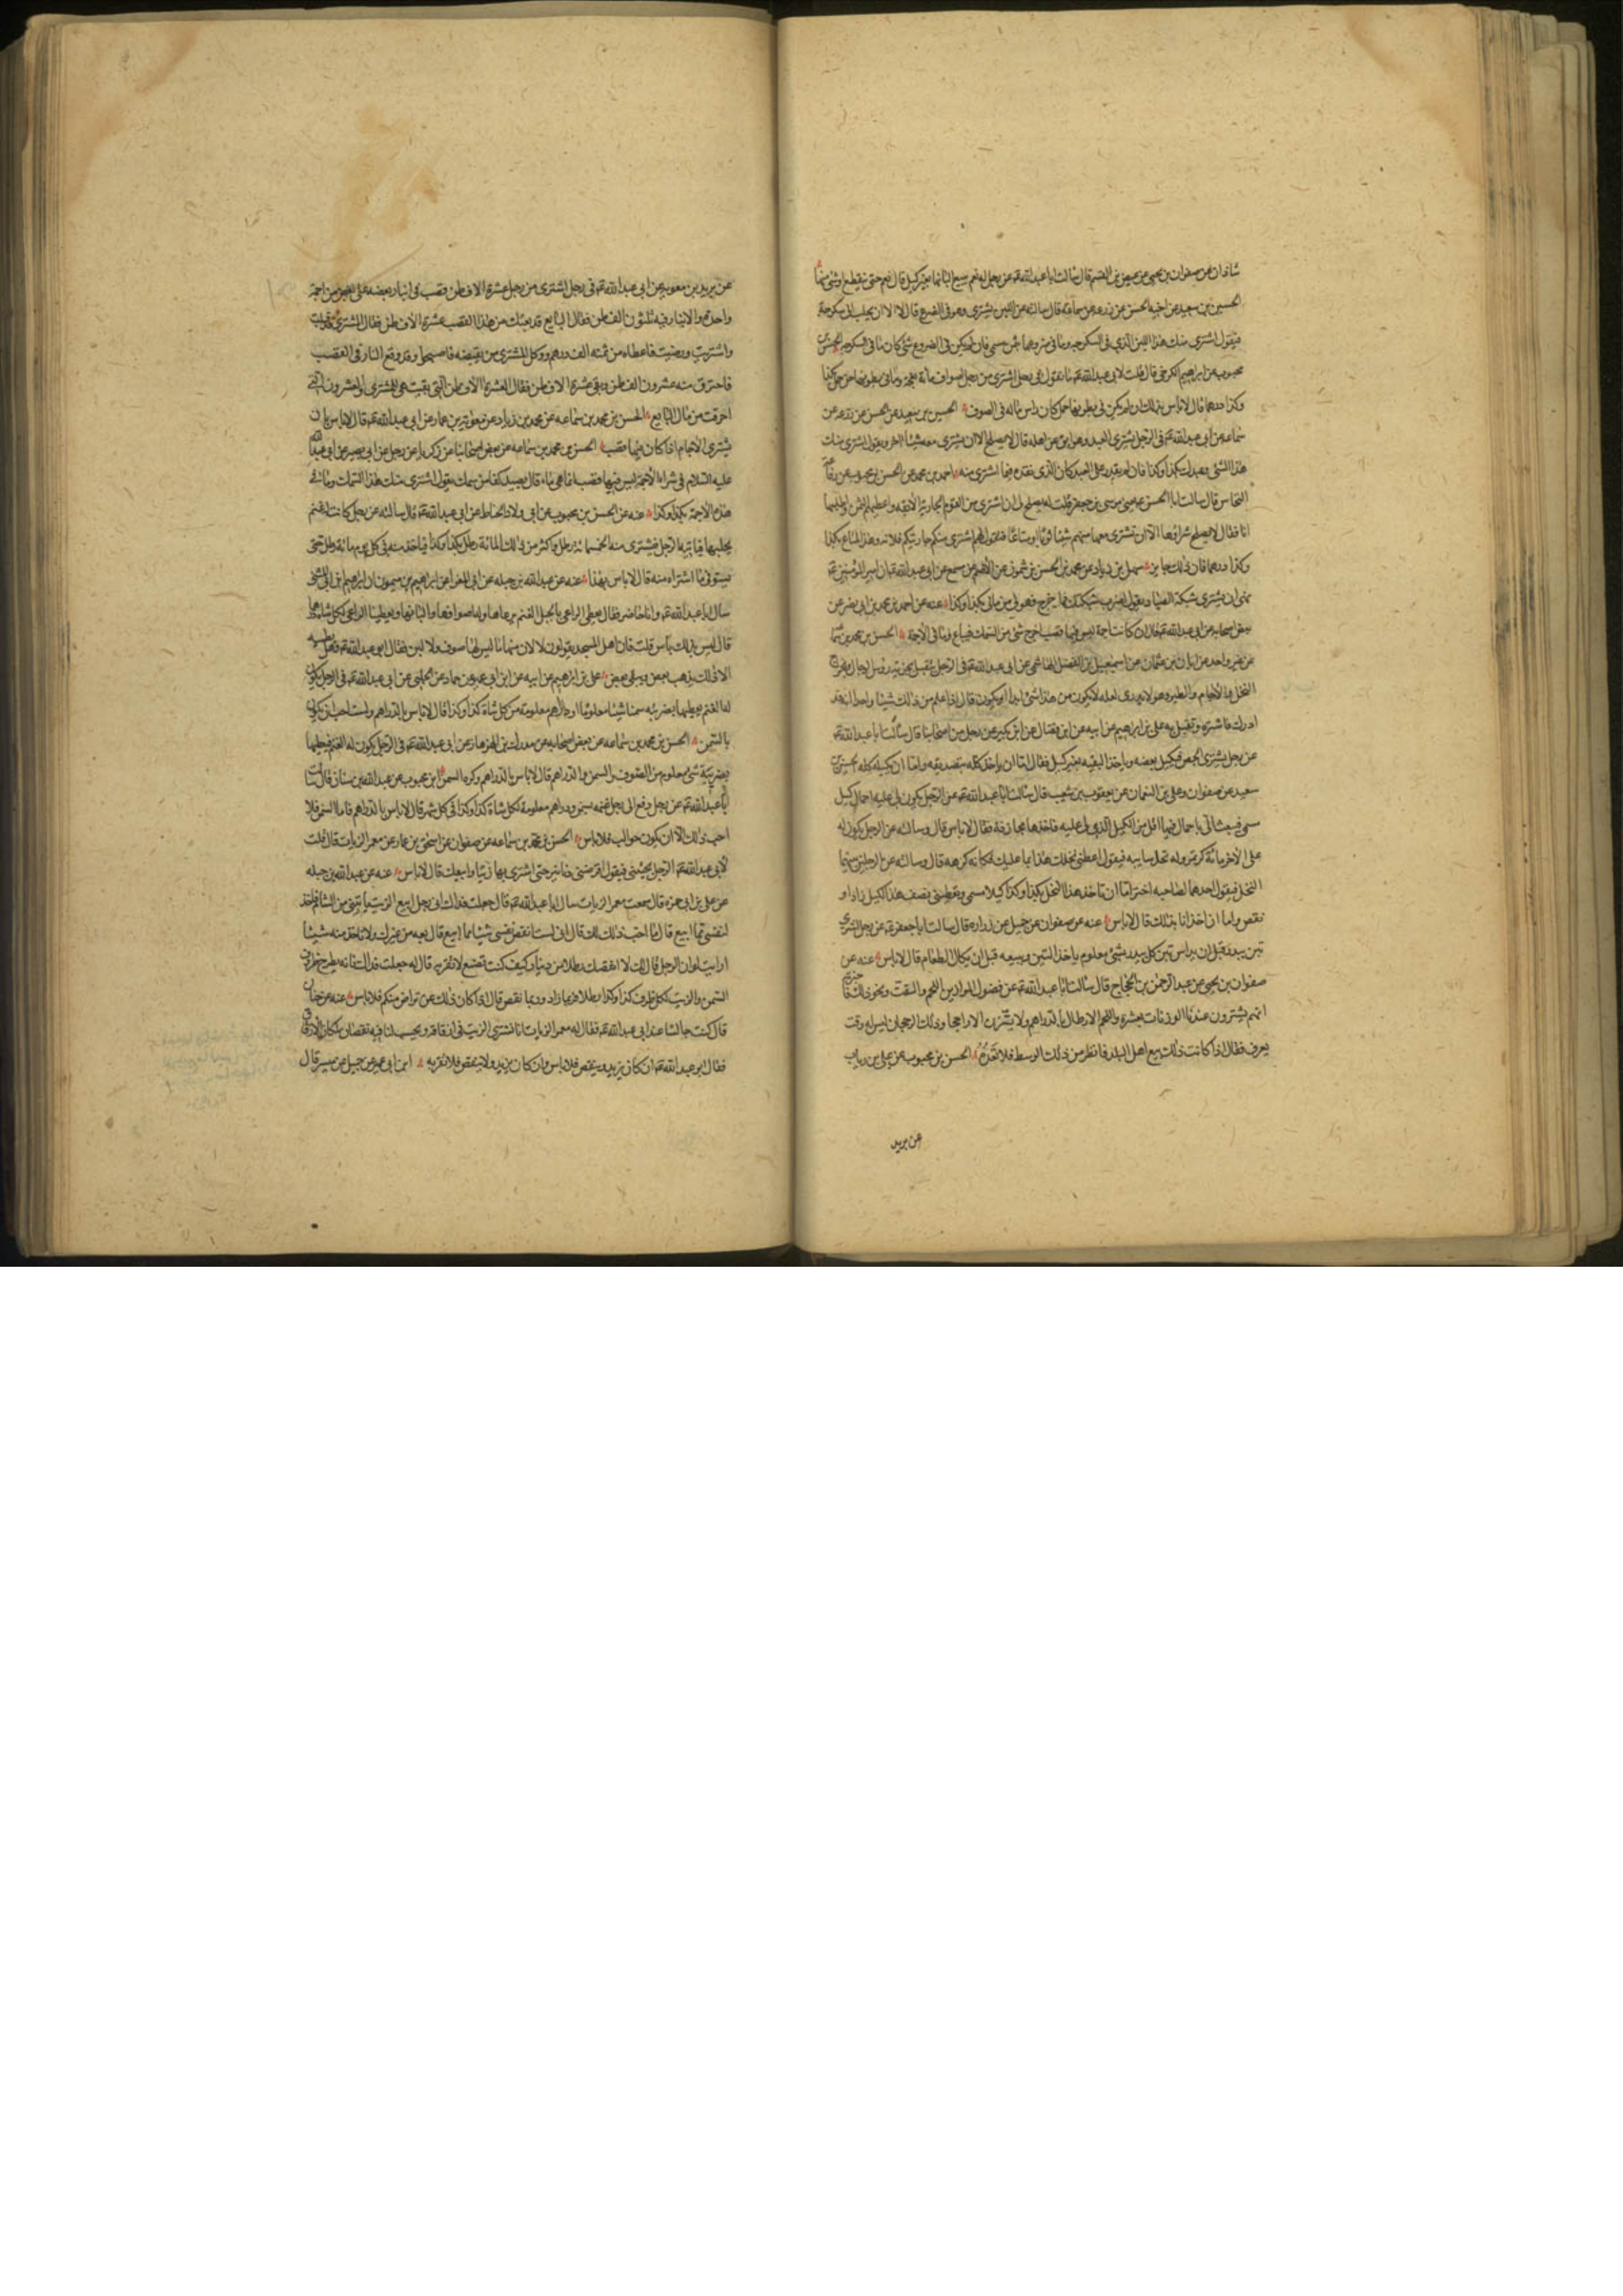 شاذان عن صفوان بن يحيى عن عيص بن القسم قال سالت ابا عبد الله ع عن رجل له نعم يبيع البانها بغير كيل قال نعم حتى ينقطع اوشئ منها
الحسين بن سعيد عن اخيه الحسن عن زرعه عن سماعة قال سالته عن اللبن يشترى وهو فى الضرع قال لا الا ان يحلب لك سكرجة
فيقول اشترى منك هذا اللبن الذى فى السكرجه وما فى ضروعها بثمن مسمى فان لم يكن فى الضروع شئ كان ما فى السكرجه الحسن بن
محبوب عن ابراهيم الكرخى قال قلت لابى عبد الله ع ما تقول فى رجل اشترى من رجل اصواف مائة نعجة وما فى بطونها من حمل بكذا
وكذا درهما قال لا باس بذلك ان لم يكن فى بطونها حمل كان راس ماله فى الصوف الحسين بن سعيد عن الحسن عن زرعه عن
سماعه عن ابى عبد الله ع فى الرجل يشترى العبد وهو ابق عن اهله قال لا يصلح الا ان يشترى معه شيئا اخر ويقول اشترى منك
هذا الشئ وعبدك بكذا وكذا فان لم يقدر على العبد كان الذى نقده فيما اشترى منه احمد بن محمد عن الحسن بن محبوب عن رفاعة
النخاس قال سالت ابا الحسن يعنى موسى بن جعفر قلت له يصلح لى ان اشترى من القوم الجارية الابقه واعطيهم الثمن واطلبها
انا فقال لا يصلح شراؤها الا ان تشترى معها منهم شيئا ثوبا او متاعا فتقول لهم اشترى منكم جاريتكم فلانه وهذا المتاع بكذا
وكذا درهما فان ذلك جايز سهل بن زياد عن محمد بن الحسن بن شمون عن الاصم عن مسمع عن ابى عبد الله ع ان امير المؤمنين ع
نهى ان يشترى شبكة الصياد يقول اضرب بشبكتك فما خرج فهو لى من مالى بكذا وكذا عنه عن احمد بن محمد بن ابى نصر عن
بعض اصحابه عن ابى عبد الله ع قال اذا كانت اجمة ليس فيها قصب اخرج شئ من السمك فيباع وما فى الاجمة الحسن بن محمد بن سماعه
عن غير واحد عن ابان بن عثمان عن اسمعيل بن الفضل الهاشمى عن ابى عبد الله ع فى الرجل يتقبل بجزية رؤس الرجال وبخراج
النخل والاجام والطير وهو لا يدرى لعله لا يكون من هذا شئ ابدا او يكون قال اذا علم من ذلك شيئا واحدا انه قد
ادرك فاشتره وتقبل به على بن ابراهيم عن ابيه عن ابن فضال عن ابن بكير عن رجل من اصحابنا قال سالت ابا عبد الله ع
عن رجل يشترى الجص فيكيل بعضه وياخذ البقيه بغير كيل فقال اما ان ياخذ كله بتصديقه واما ان يكيله كله الحسين بن
سعيد عن صفوان وعلى بن النعمان عن يعقوب بن شعيب قال سالت ابا عبد الله ع عن الرجل يكون لى عليه احمال كيل
مسمى فيبعث الى باحمال فيها اقل من الكيل الذى لى عليه فاخذها مجازفة فقال لا باس قال وسالته عن الرجل يكون له
على الاخر مائة كر تمر وله نخل فياتيه فيقول اعطنى نخلك هذا بما عليك فكانه كرهه قال وسالته عن الرجلين بينهما
النخل فيقول احدهما لصاحبه اختر اما ان تاخذ هذا النخل بكذا وكذا كيلا مسمى وتعطينى نصف هذا الكيل زاد او
نقص واما ان اخذ انا بذلك قال لا باس عنه عن صفوان عن جميل عن زراره قال سالت ابا جعفر ع عن رجل اشترى
تبن بيدر قبل ان يداس تبن كل بيدر بشئ معلوم ياخذ التبن ويبيعه قبل ان يكال الطعام قال لا باس عنه عن
صفوان بن يحيى عن عبد الرحمن بن الحجاج قال سالت ابا عبد الله ع عن فضول الموازين اللحم والقت ونحو ذلك
انهم يشترون عندنا الوزنات بعشرة واللحم الارطال بالدراهم ولا يتزن الا راجحا وذلك الرجحان ليس له وقت
يعرف فقال اذا كانت ذلك بيع اهل البلد فانظر من ذلك الوسط فلا تعده الحسن بن محبوب عن على بن رياب
عن بريد
عن بريد بن معويه عن ابى عبد الله ع فى رجل اشترى من رجل عشرة الاف طن قصب فى انبار بعضه على بعض من اجمة
واحدة والانبار فيه ثلثون الف طن فقال البايع قد بعتك من هذا القصب عشرة الاف طن فقال المشترى قد قبلت
واشتريت ورضيت فاعطاه من ثمنه الف درهم ووكل المشترى من يقبضه فاصبحوا وقد وقع النار فى القصب
فاحترق منه عشرون الف طن وبقى عشرة الاف طن فقال العشرة الاف طن التى بقيت هى للمشترى والعشرون التى
احرقت من مال البايع الحسن بن محمد بن سماعه عن محمد بن زياد عن معوية بن عمار عن ابى عبد الله ع قال لا باس بان
يشترى الاجام اذا كان فيها قصب الحسن بن محمد بن سماعه عن بعض اصحابنا عن زكريا عن رجل عن ابى بصير عن ابى عبد الله
عليه السلام فى شراء الاجمة ليس فيها قصب انما هى ماء قال يصيد كفا من سمك يقول اشترى منك هذا السمك وما فى
هذه الاجمة بكذا وكذا عنه عن الحسن بن محبوب عن ابى ولاد الحناط عن ابى عبد الله ع قال سالته عن رجل كانت له غنم
يحلبها فياتيه الرجل فيشترى منه الخمسمائة رطل واكثر من ذلك المائة رطل بكذا وكذا فياخذ منه فى كل يوم مائة رطل حتى
يستوفى ما اشتراه منه قال لا باس بهذا عنه عن عبد الله بن جبله عن ابى المغرا عن ابراهيم بن ميمون ان ابراهيم بن ابى المثنى
سال ابا عبد الله ع وانا حاضر فقال يعطى الراعى بالجبل الغنم يرعاها وله اصوافها والبانها ويعطينا الراعى لكل شاة درهما
قال ليس بذلك باس قلت فان اهل المسجد يقولون لا لان منها ما ليس لها صوف ولا لبن فقال ابو عبد الله ع وهل يطيبه
الا ذلك يذهب بعض ويبقى بعض على بن ابراهيم عن ابيه عن ابن ابى عمير عن حماد عن الحلبى عن ابى عبد الله ع فى الرجل يكون
له الغنم يعطيها بضريبه سمنا شيئا معلوما او دراهم معلومة من كل شاة كذا وكذا قال لا باس بالدراهم ولست احب ان يكون
بالسمن الحسن بن محمد بن سماعه عن بعض اصحابه عن مدرك بن الهزهاز عن ابى عبد الله ع فى الرجل يكون له الغنم فيعطيها
بضريبة شئ معلوم من الصوف والسمن والدراهم قال لا باس بالدراهم وكره السمن ابن محبوب عن عبد الله بن سنان قال سالت
ابا عبد الله ع عن رجل دفع الى رجل غنمه بسمن ودراهم معلومة لكل شاة كذا وكذا فى كل شهر قال لا باس بالدراهم فاما السمن فلا
احب ذلك الا ان يكون حوالب فلا باس الحسن بن محمد بن سماعه عن صفوان عن اسحق بن عمار عن معمر الزيات قال قلت
لابى عبد الله ع الرجل يجيئنى فيقول اقرضنى دنانير حتى اشترى بها زيتا وابيعك قال لا باس عنه عن عبد الله بن جبله
عن على بن ابى حمزه قال سمعت معمر الزيات سال ابا عبد الله ع قال جعلت فداك انى رجل ابيع الزيت ياتينى من الشام فاخذ
لنفسى مما ابيع قال ما احب ذلك لك قال انى لست انقص نفسى شيئا مما ابيع قال بعه من غيرك ولا تاخذ منه شيئا
ارايت لو ان الرجل قال لك لا انقصك رطلا من دينار كيف كنت تصنع لا تقربه قال له جعلت فداك فانه يطرح ظروف
السمن والزيت كل ظرف كذا وكذا رطلا فربما زاد وربما نقص قال اذا كان ذلك عن تراض منكم فلا باس عنه عن حنان
قال كنت جالسا عند ابى عبد الله ع فقال له معمر الزيات انا نشترى الزيت فى ازقاقه ويحسب لنا فيه نقصان لمكان الازقاق
فقال ابو عبد الله ع ان كان يزيد وينقص فلا باس وان كان يزيد ولا ينقص فلا تقربه ابن ابى عمير عن جميل عن ميسر قال